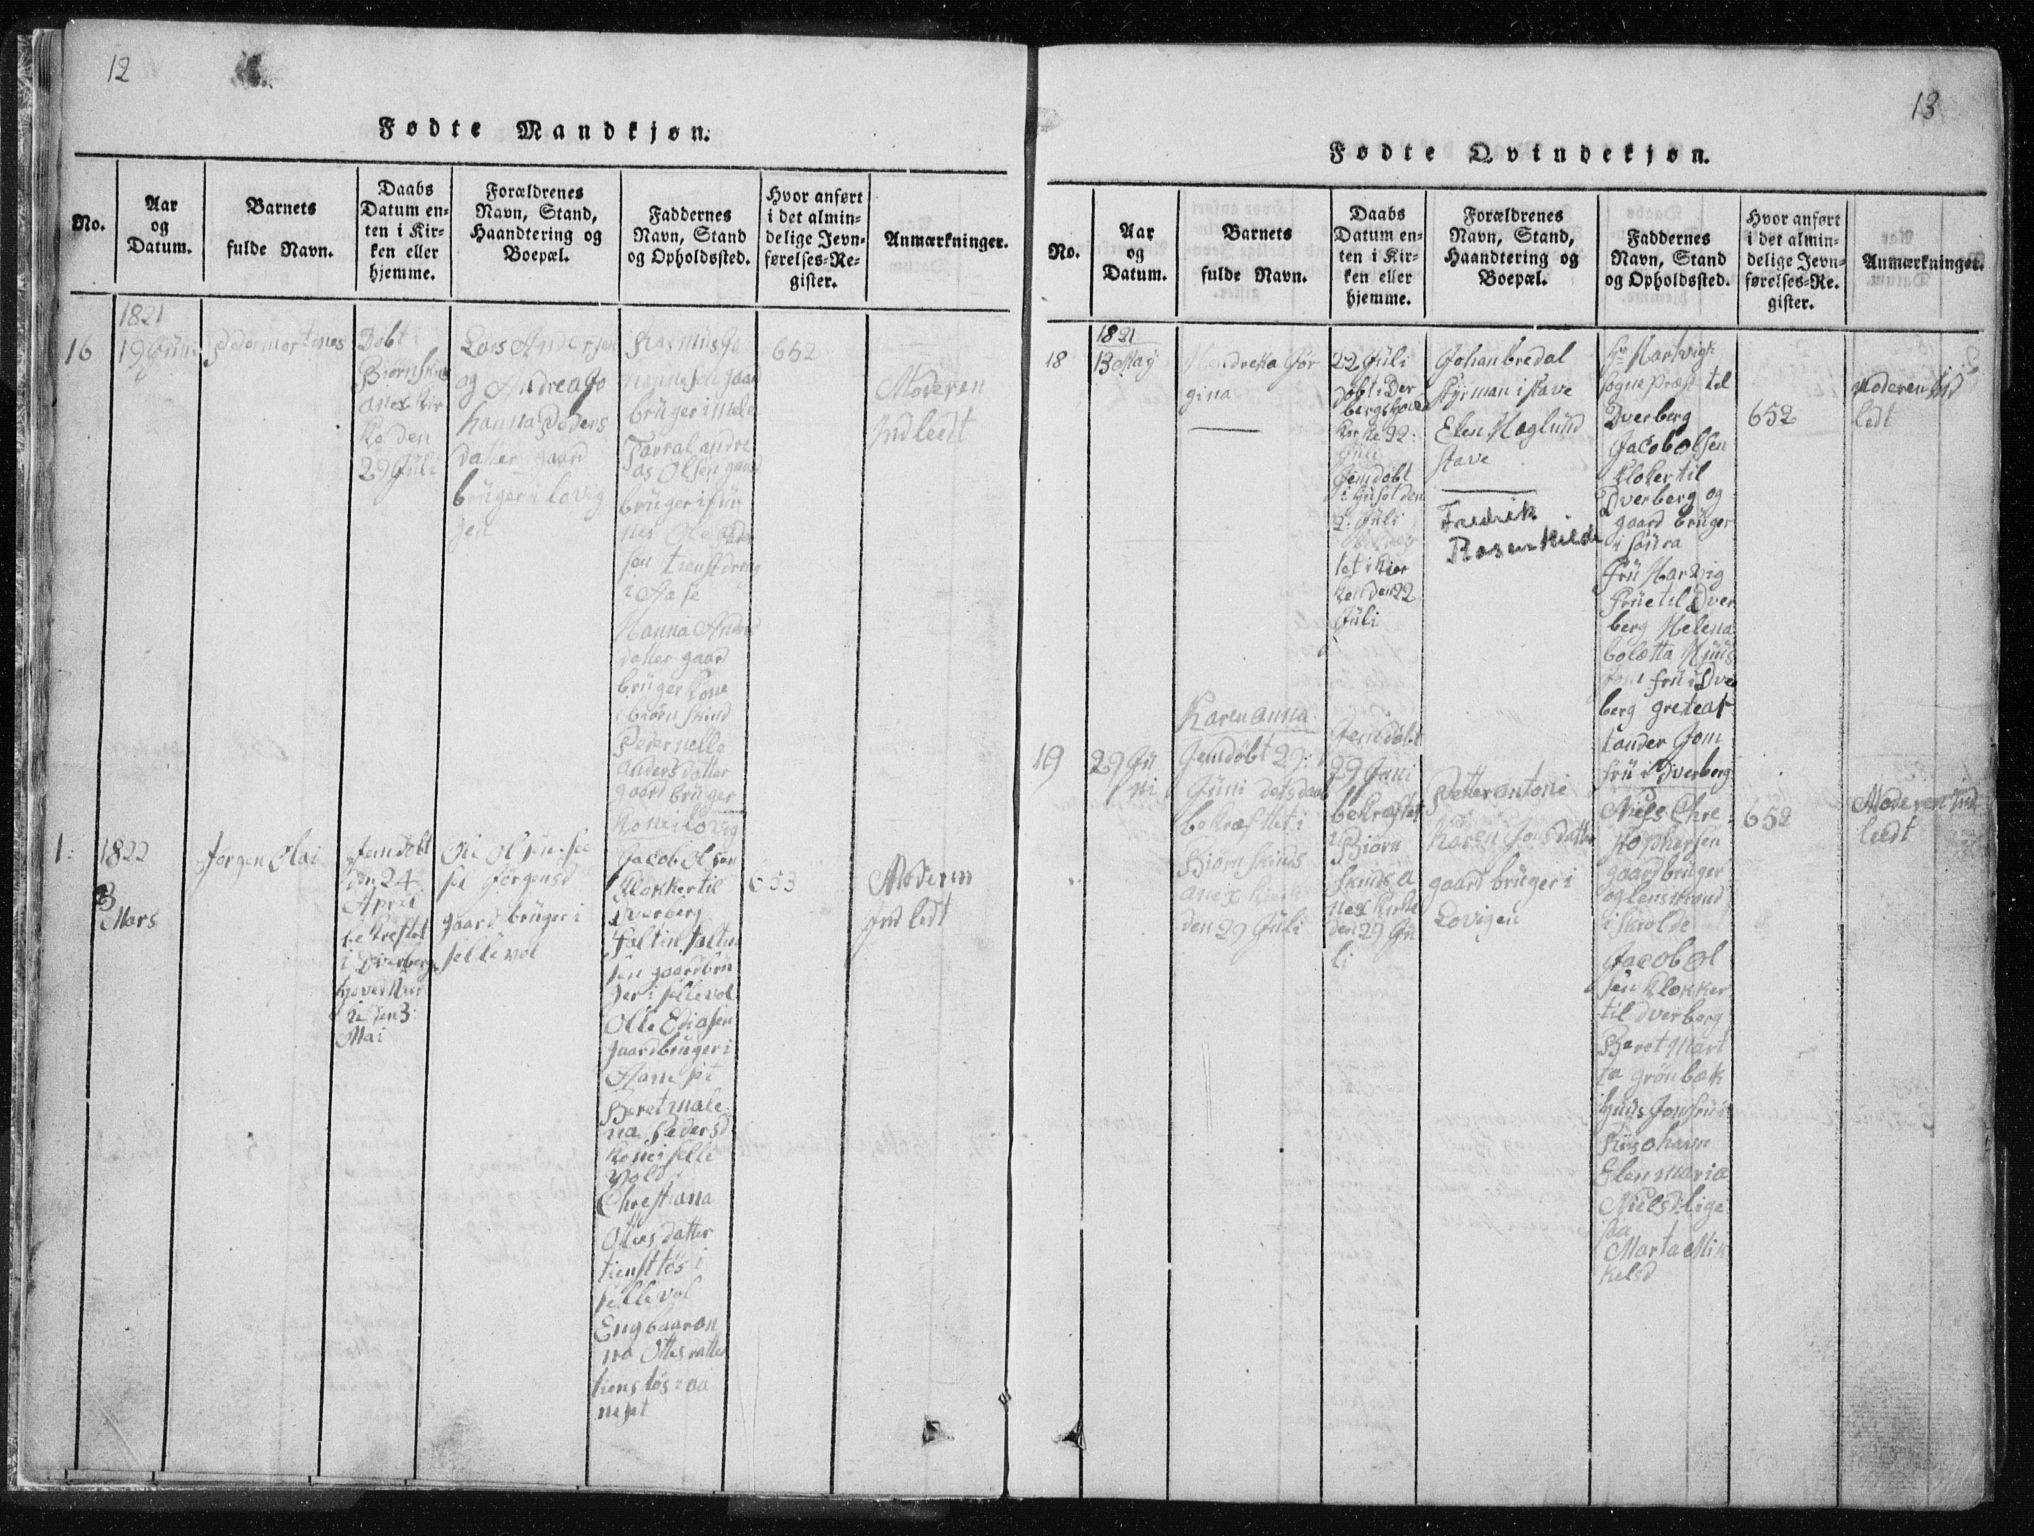 12
Fødte Mandkjøn.
No.
Aar
og
Datum.
Barnets
fulde Navn.
Daabs
Datum en-
ten i Kir-
ken eller
hjemme.
Forældrenes
Navn, Stand,
Haandtering og
Boepæl.
Faddernes
Navn, Stand
og Opholdssted.
Hvor anført
i det almin-
delige Jevn-
førelses-Re-
gister.
Anmærkninger.
16
1821
19 Juni
Pedermortines
Døbt i
Biørnskind
anex kir
ke den
29 Juli
Lars Andersen
og Andrea Jo
hanna Peders
datter gaard
brüger i Lovig
jen
Rasmus Jo
hannesen gaar
brüger i
andre
as Olsen gaard
brüger i
nes Ole
sen tienstdreng
i Aase
Hanna Anders
datter gaard
brüger kone
i biørnskind
Peternelle
andersdatter
gaard brüger
kone i Lovig
652
Moderen
Indleedt
1:
1822
3
Mars
Jørgen Olai
Jemdøbt
den 24
April
bekreftet
i Dverberg
hoved kir
ke den 3:
Mai
Ole Olsen
Jørgensd
gaard brüger i
sellevol
Jacob Olsen
klokker til
Dverberg
Faltin Faltin
sen gaardbrü
ger i sellevol
Olle Ediasen
gaardbrüger i
Aanesèt
Beretmale
na Pedersd
kone i selle
vold
Chrestiana
Ottesdatter
tiensttøs i
sellevol
Engbaaran
na Ottesdatter
tienstøs i aa
neset
653
Moderen
Indledt
13
Fødte Qvindekjøn.
No.
Aar
og
Datum.
Barnets
fulde Navn.
Daabs
Datum en-
ten i Kir-
ken eller
hjemme.
Forældrenes
Navn, Stand,
Haandtering og
Boepæl.
Faddernes
Navn, Stand
og Opholdssted.
Hvor anført
i det almin-
delige Jevn-
førelses-Re-
gister.
Anmærkninger.
18
1821
13 May
Hendreka Jør
gina
22 Juli
døbt i Dver
bergs hoved
kirke 22:
Juli
Jemdøbt
i huset den
2: Juli
tet i kier
ken den 22
Juli
Johan bredal
styrman i stave
Elen Haglund
stave
Fredrik
Rosenkilde
Hr Hartvig
sogneprest til
Dverberg
Jacob Olsen
klokker til
Dverberg og
gaard brüger
i
Frü Hartvig
früe til Dver
berg Helena
boletta
frü i Dver
berg grete as
tander Jom
frü i Dverberg
652
Moderen ind
ledt
19
29 Ju
ni
Karen anna
Jemdøbt 29:
Juni dets daab
bekræftet i
Biørnskinds
anex kierke
den 29 Juli
Jemdøbt
29 Juni
bekræftet
i Biørn
skinds a
nex kirke
den 29 Ju
li
Petter antoni
Karen Jonsdatter
gaard brüger i
Lovigen
Niels Chre
stophersen
gaardbrüger
og lensmand
i skolde
Jacob Ol
sen klokker
til dverberg
Beret Mart
ta grönbæk
Jomfrü i
Elen maria
Nielsd
Marta Mik
kelsd
652
Moderen ind
leedt